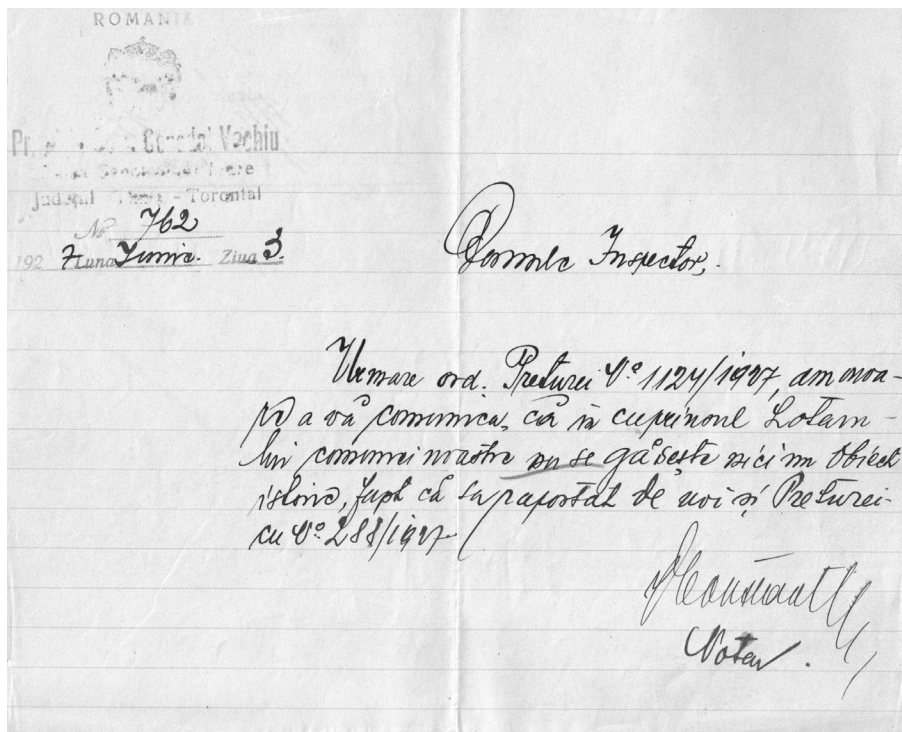 ROMANIA
Cenadul Vechiu
Mare
Județul Timiș - Torontal
No 762
1927 Luna Iunie. Ziua 3.
Domnule Inspector,
Urmare ord. Preturei No 1124/1927, am onoa-
re a vă comunica, că în cuprinsul hotaru-
lui comunei noastre nu se găsește nici un obiect
istoric, fapt că s'a raportat de noi și Preturei
cu No. 288/1927
Notar.